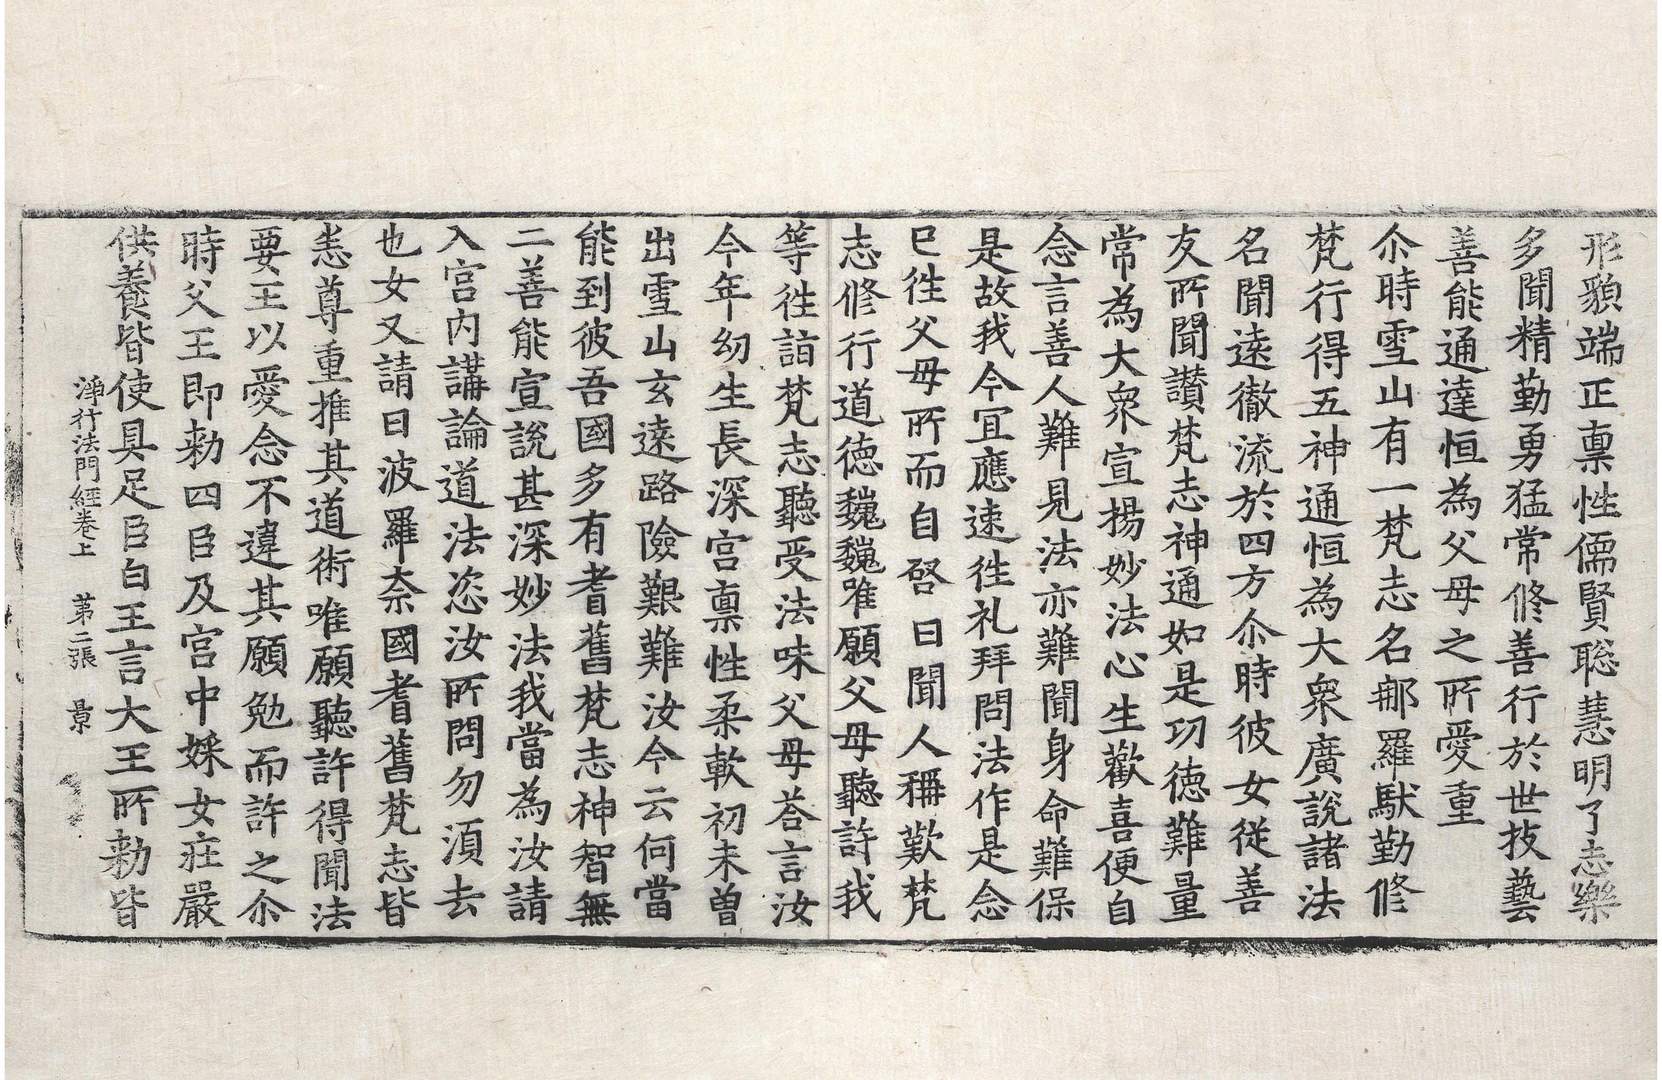 形貌端正禀性儒賢聡慧明了志樂
多聞精勤勇猛常修善行於世技藝
善能通達恒為父母之所愛重
尒時雪山有一梵志名那羅馱勤修
梵行得五神通恒為大衆廣說諸法
名聞逺徹流於四方尒時彼女從善
友所聞讚梵志神通如是功德難量
常為大衆宣揚妙法心生歡喜便自
念言善人難見法亦難聞身命難保
是故我今冝應速徃礼拜問法作是念
已徃父母所而自啓曰聞人稱歎梵
志修行道德巍巍唯願父母聽許我
等徃詣梵志聽受法味父母荅言汝
今年幼生長深宮禀性柔軟初未曽
出雪山玄逺路險艱難汝今云何當
能到彼吾國多有耆舊梵志神智無
二善能宣說甚深妙法我當為汝請
入宮内講論道法恣汝所問勿湏去
也女又請曰波羅奈國耆舊梵志皆
悉尊重推其道術唯願聽許得聞法
要王以愛念不違其願勉而許之尒
時父王即勑四臣及宮中婇女荘嚴
供養皆使具足臣白王言大王所勑皆
淨行法門經卷上 第二張 景